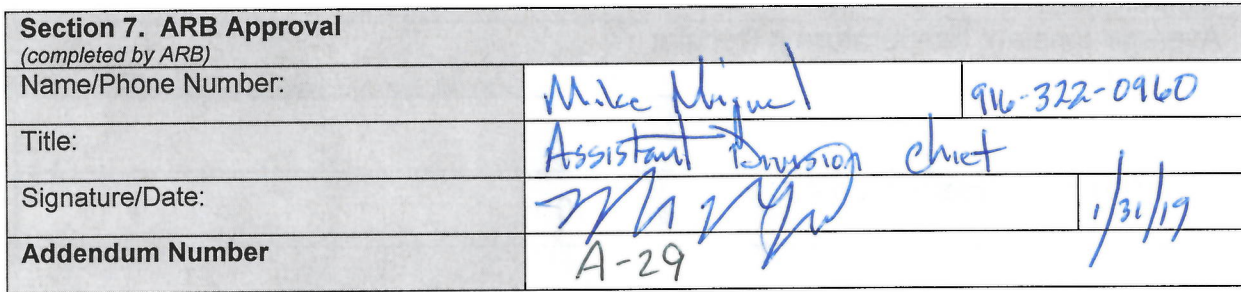 Section 7. ARB Approval
(completed by ARB)
Name/Phone Number: Mike Miguel 916-322-0960
Title: Assistant Division Chief
Signature/Date: 1/31/19
Addendum Number A-29